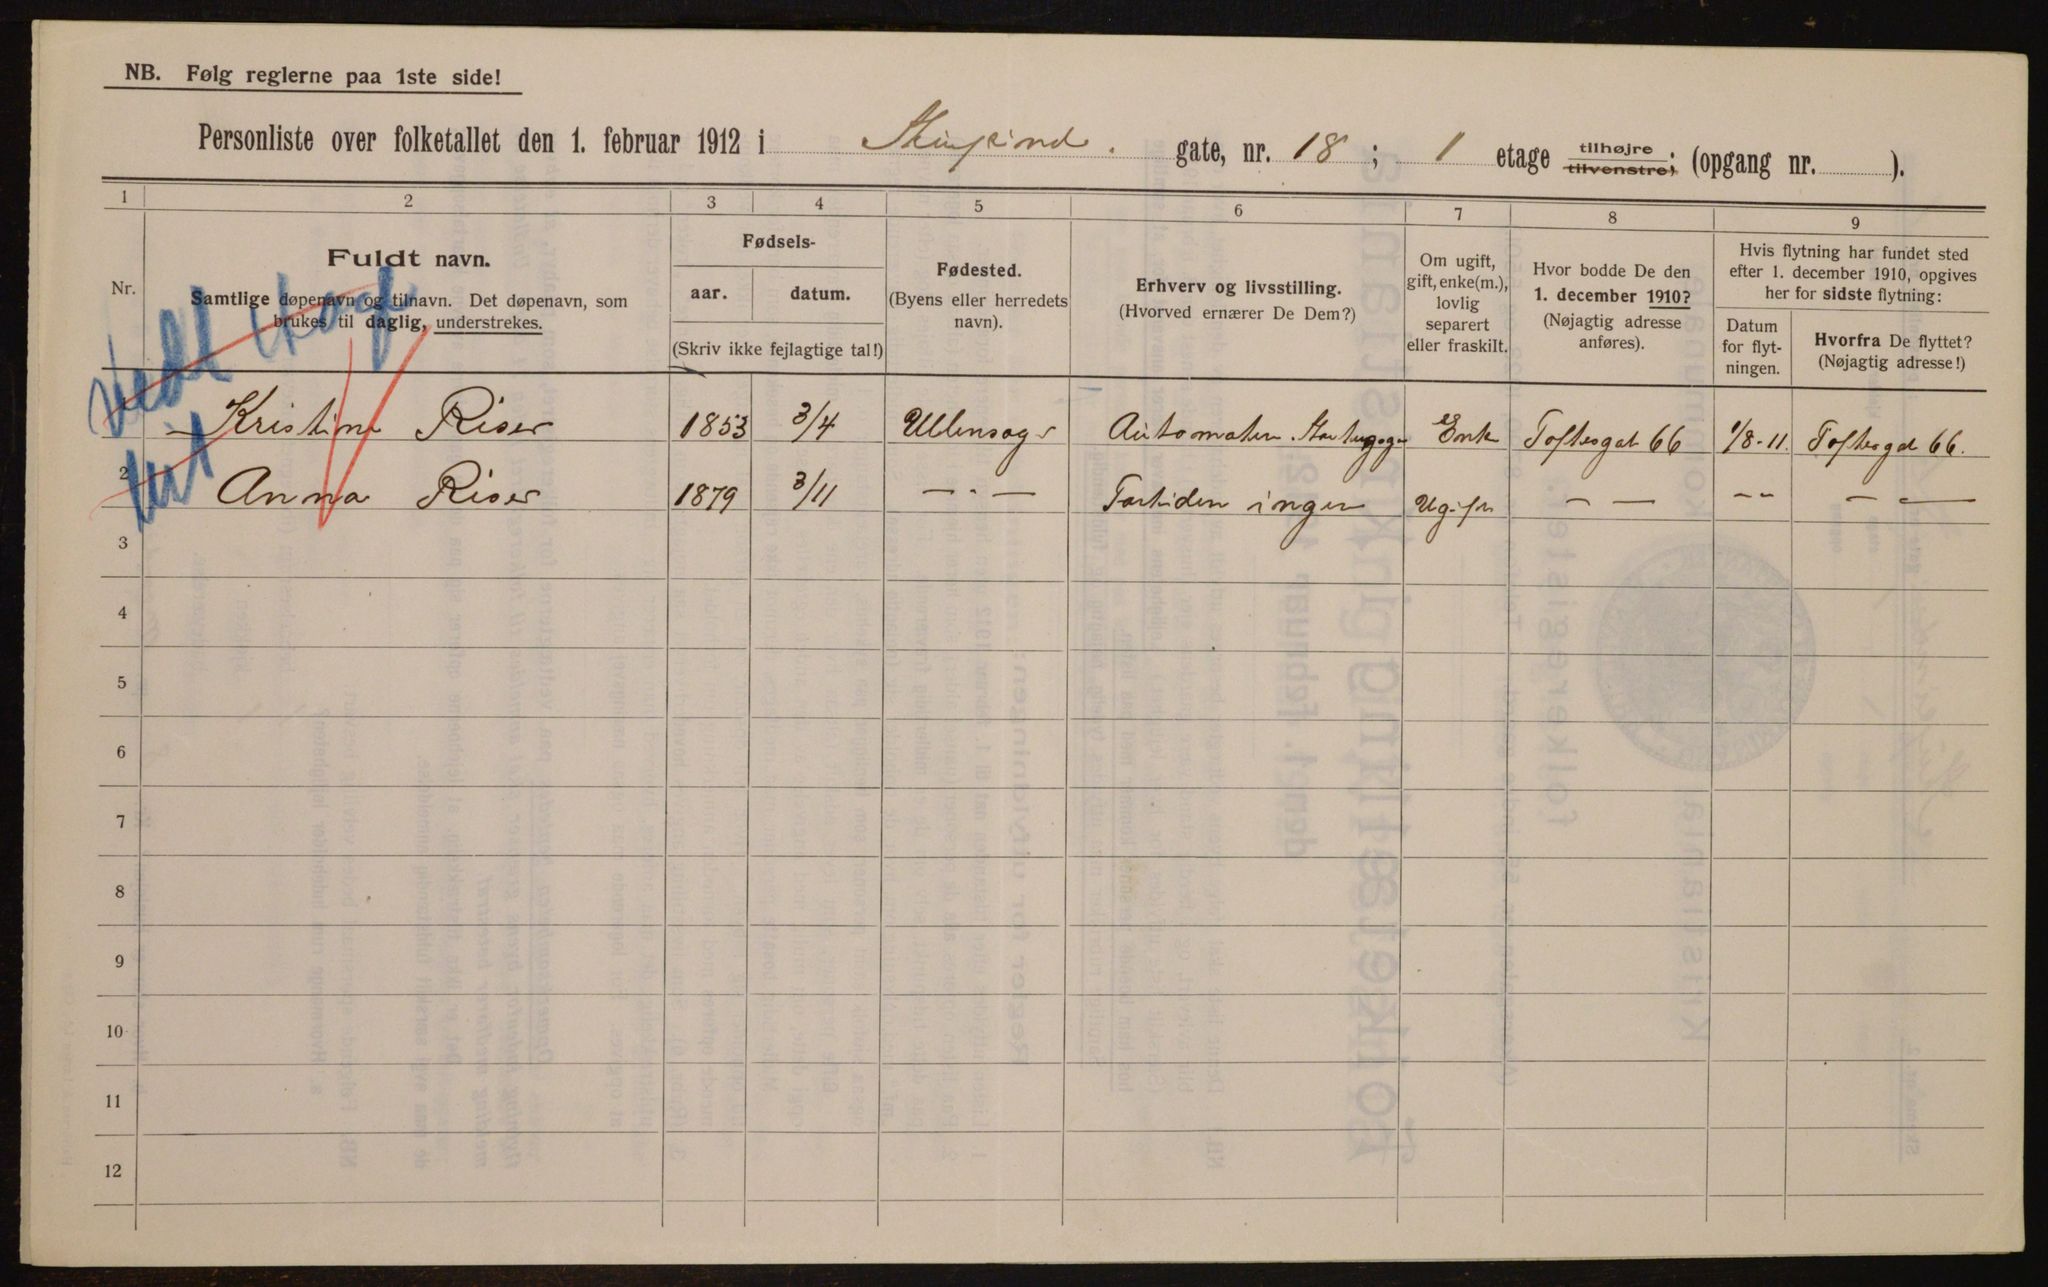 NB. Følg reglerne paa 1ste side!
Personliste over folketallet den 1. februar 1912 i gate, nr. 18; 1 etage tilhøjre tilvenstre; (opgang nr. ).
1 2 3 4 5 6 7 8 9
Nr.
Fuldt navn.
Samtlige døpenavn og tilnavn. Det døpenavn, som
brukes til daglig, understrekes.
Fødsels-
aar. datum.
(Skriv ikke fejlagtige tal!)
Fødested.
(Byens eller herredets
navn).
Erhverv og livsstilling.
(Hvorved ernærer De Dem?)
Om ugift,
gift, enke(m.),
lovlig
separert
eller fraskilt.
Hvor bodde De den
1. december 1910?
(Nøjagtig adresse
anføres).
Hvis flytning har fundet sted
efter 1. december 1910, opgives
her for sidste flytning:
Datum
for flyt-
ningen.
Hvorfra De flyttet?
(Nøjagtig adresse!)
Kristine Riser 1853 3/4 Ullensager Automaten Enke Toftesgat 66 1/8-11 Toftesgat 66.
2 Anna Riser 1879 3/11 — " — Fortiden ingen Ugift — — " — —
3
4
5
6
7
8
9
10
11
12